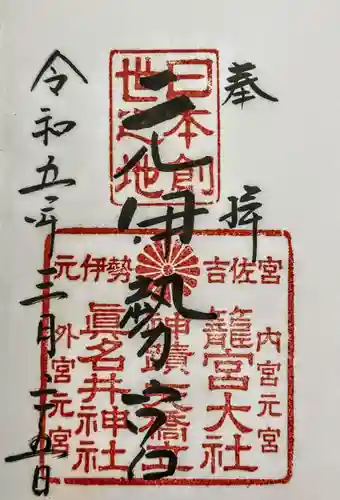 奉拝
日本創
世造地
元伊勢宮
元伊勢 吉佐宮
内宮元宮
籠宮大社
神蹟天橋立
眞名井神社
外宮元宮
令和五年三月二十五日